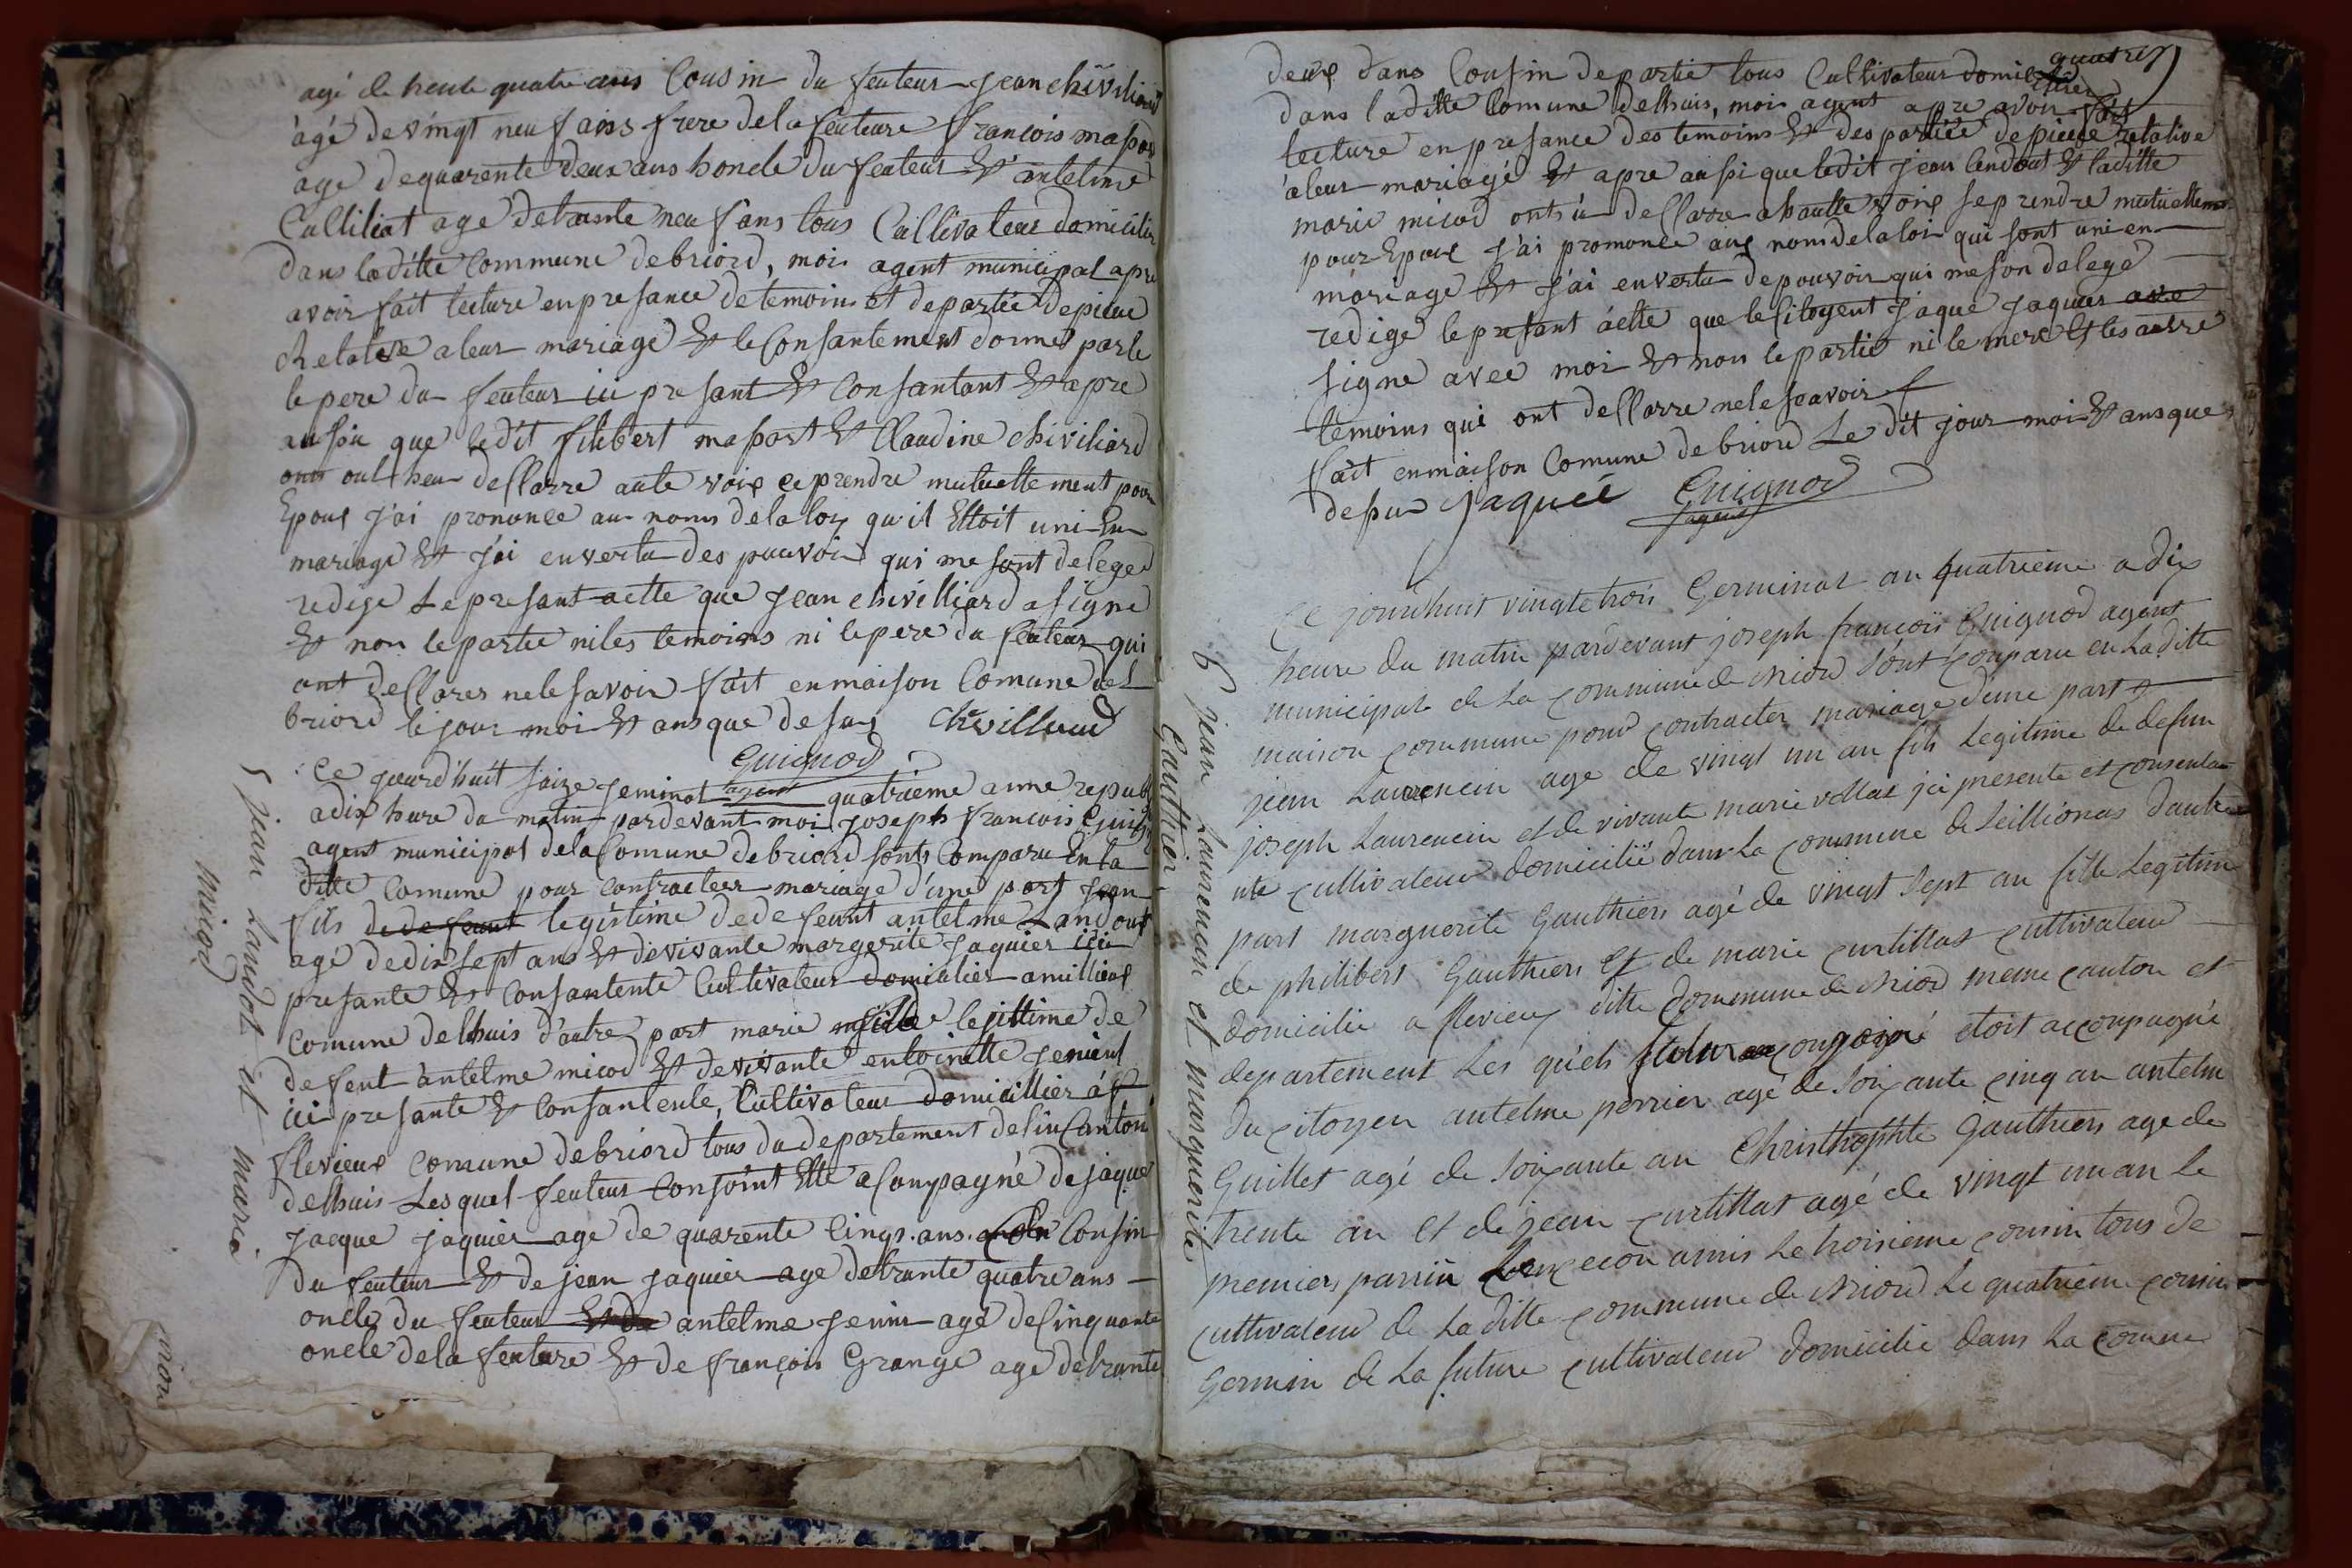 agé de trente quatre ans Cousin du feuteur jean chiviliard
agé de vingt neuf ans frere de la feuteure françois masson
age de quarente deux ans honcle du feuteur Et antelme
Cultiliat age de trante neuf ans tous Cultivateur domicilier
dans la ditte Commune de briord, moi agent municipal apre
avoir fait lecture en presance de temoins et de partie de piece
Relative a leur mariage Et le Consantement donné par le
le pere du feuteur ici presant Et Consantant Et apre
aussu que ledit filibert massart Et Claudine chiviliard
ont heu dellarre aute voix ce prendre mutuellement pour
Epoux j'ai prononce au noms de la loy qu'il Ettoit uni En
mariage Et j'ai en vertu des pouvoir qui me sont deleger
redige Le presant actte que jean chivilliard a signe
Et non le partie ni les temoins ni le pere du feuteur qui
ont dellarer ne le savoir fait en maison Comune de
briord le jour moi Et ans que de sus Chivilliard
Guignod
agent
Ce jourd'huit saize jeminal quatrieme anne repub
a dix heure du matin pardevant moi joseph francois Guignod
agent municipal de la Comune de briord sonts Comparu En la
ditte Comune pour Contracteer mariage d'une part jean
fils de defeunt legistime de defeunt antelme Landout
agé de dix sept ans Et de vivante margerite jaquier ici
presante Et Consantente Cultivateur domicilier a millieux
Comune de lhuis d'autre part marie fille lejittime de
defeut antelme micod Et de vivante entoinette jenient
ici presante Et Consantente, Cultivateur domicillier a
flevieux Comune de briord tous du departement de lin Canton
de lhuis Les quel feuteur Conjoint Ette aCompagné de jaque
jacque jaquier age de quarente Cinq ans Cousin
du feuteur Et de jean jaquier age de trante quatre ans
oncle du feuteur Et de antelme jenin agé de Cinquante
oncle de la feuture Et de françois Grange agé de trante
5 jean Landot et marie
micod
quatre
deux dans Cousin de partie tous Cultivateur domicilier
dans laditte Comune de lhuis, moi agent apre avoir fait
lecture en presance des temoins Et des partiee de piece relative
a leur mariagé Et apre aussi que ledit jean landout Et laditte
marie micod onts u dellarre a haulte voix se prendre mutuellement
pour Epoux j'ai promonce aux nom de la loi qui sont uni en
mariage Et j'ai en vertu de pouvoir qui me son delegé
redige le presant actte que le sitoyent jaque jaquier a
signe avec moi Et non le partie ni le mere Et les autre
temoins qui ont dellarre ne le scavoir
fait en maison Comune de briord Le dit jour moi Et ans que
de sus jaquié Guignod
agent
Ce jourdhuit vingte trois Germinal an quatrieme a dix
heure du matin pardevant joseph françois Guignod agent
municipale de la commune de Briord sont comparu en la ditte
maison commune pour contracter mariage d'une part
jean Laurencin age de vingt un an fils legitime de defun
joseph Laurencin et de vivante marie vettat ici presente et consenta
nte cultivateur domicilié dans la commune de seillionas d'autre
part marguerite Gauthier agé de vingt sept an fille Legitime
de philibert Gauthier Et de marie curtillat cultivateur
domicilie a flevieux ditte commune de Briod meme canton et
departement Les quels future conjoint etoit accompagné
du citoyen antelme perrier agé de soixante cinq an antelme
Guillet agé de soixante an Christhophle Gauthier age de
trente an et de jean curtillat agé de vingt un an le
premier parrin le cecon amis le troisieme cousin tous de
cultivateur de la ditte commune de Briord le quatrieme cousin
Germin de la future cultivateur domicilié dans la comune
6 jean Laurencin et marguerite
Gauthier